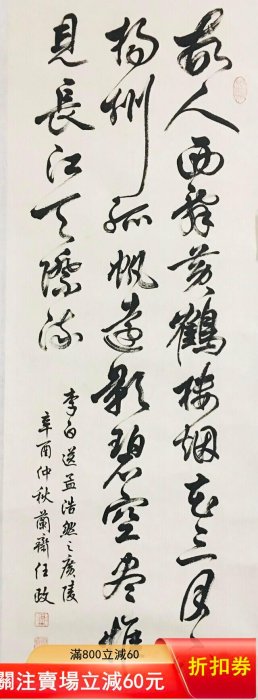 故人西辞黄鶴楼烟花三月
揚州孤帆遠影碧空盡惟
見長江天際流
李白送孟浩然之廣陵
辛酉仲秋蘭齋任政
滿800立減60
關注賣場立減60元
折扣券